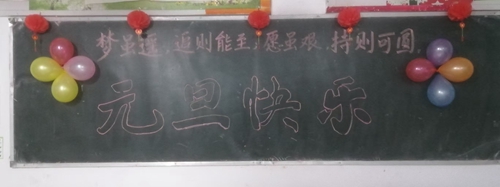 梦虽遥,近则能至;愿虽艰,持则可圆.
元旦快乐